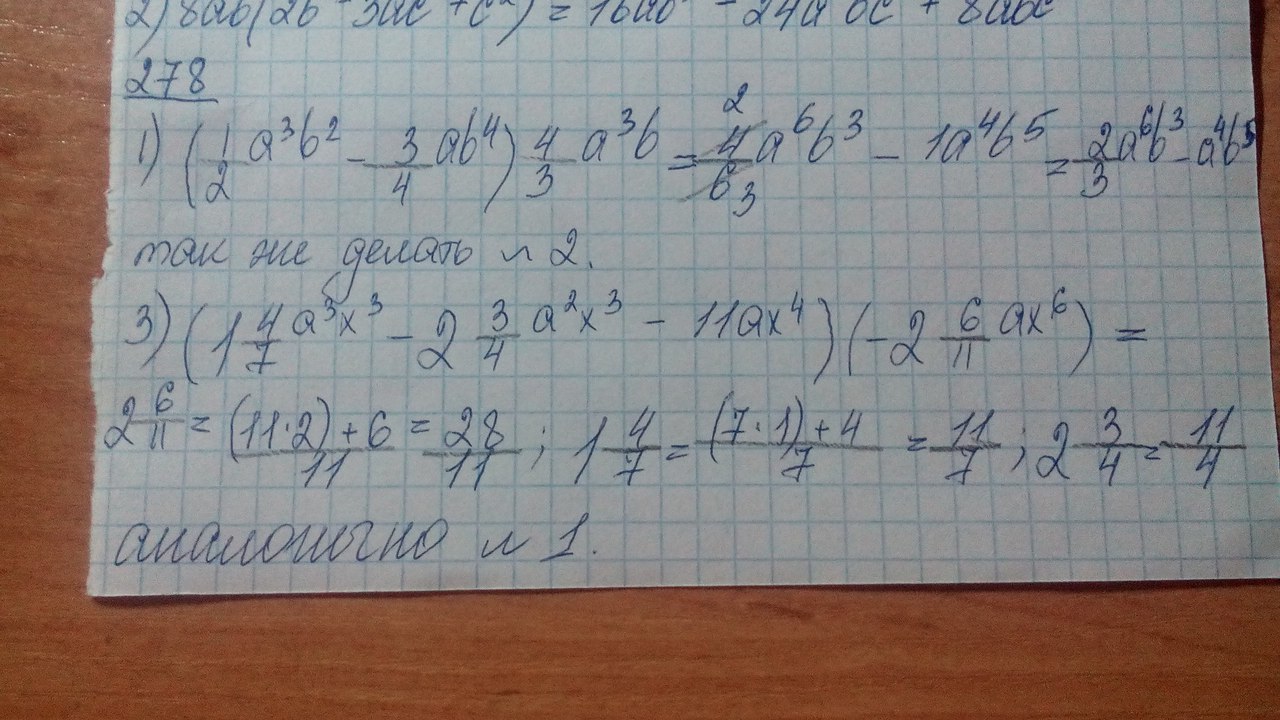 2) 8ab(2b - 3ac + c²) = 16ab - 24a bc + 8abc
278
1) (1/2 a³b² - 3/4 ab⁴) 4/3 a³b = 4/6 2 3 a⁶b³ - 1a⁴b⁵ = 2/3 a⁶b³ - a⁴b⁵
так же делать и 2.
3) (1 4/7 a³x³ - 2 3/4 a²x³ - 11ax⁴)(-2 6/11 ax⁶) =
2 6/11 = (11·2)+6/11 = 28/11 ; 1 4/7 = (7·1)+4/7 = 11/7 ; 2 3/4 = 11/4
аналогично и 1.